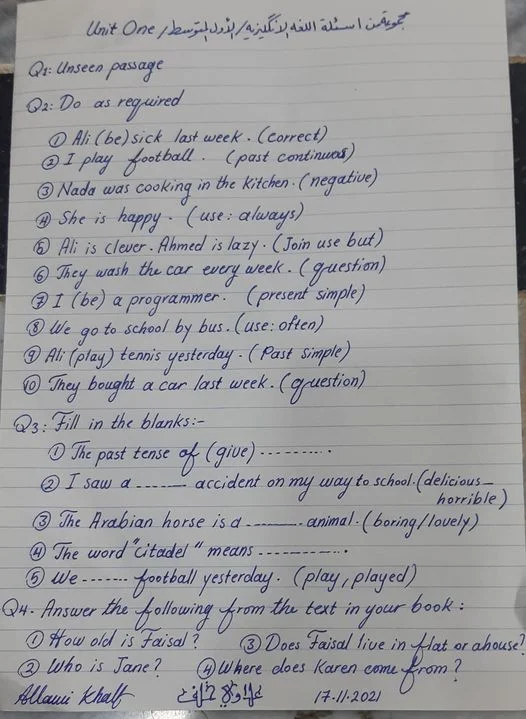 Unit One / مجموعة من اسئلة اللغة الانگليزية / الأول المتوسط
Q1: Unseen passage
Q2: Do as required
① Ali (be) sick last week. (correct)
② I play football. (past continuous)
③ Nada was cooking in the kitchen. (negative)
④ She is happy. (use: always)
⑤ Ali is clever. Ahmed is lazy. (Join use but)
⑥ They wash the car every week. (question)
⑦ I (be) a programmer. (present simple)
⑧ We go to school by bus. (use: often)
⑨ Ali (play) tennis yesterday. (Past simple)
⑩ They bought a car last week. (question)
Q3: Fill in the blanks:-
① The past tense of (give) ----------.
② I saw a ------- accident on my way to school. (delicious-
horrible)
③ The Arabian horse is a -------- animal. (boring/lovely)
④ The word "citadel" means -----------.
⑤ We ------- football yesterday. (play, played)
Q4. Answer the following from the text in your book:
① How old is Faisal? ③ Does Faisal live in flat or a house?
② Who is Jane? ④ Where does Karen come from?
Allawi Khalf علاوي خلف 17.11.2021